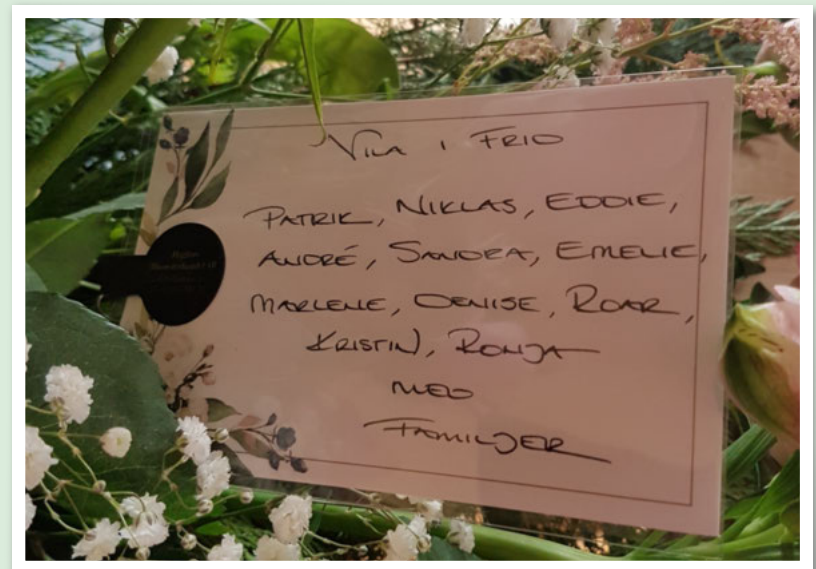 VILA I FRID
PATRIK, NIKLAS, EDDIE,
ANDRÉ, SANDRA, EMELIE,
MARLENE, DENISE, ROAR,
KRISTIN, RONJA
MED
FAMILJER